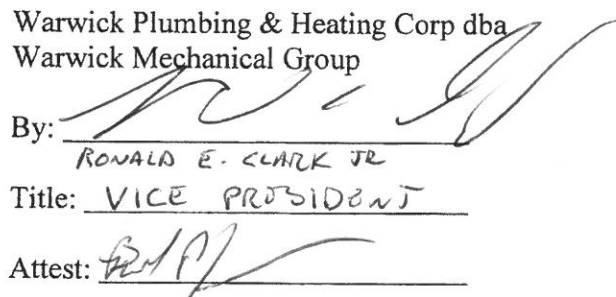 Warwick Plumbing & Heating Corp dba
Warwick Mechanical Group
By:
RONALD E. CLARK JR
Title: VICE PRESIDENT
Attest: